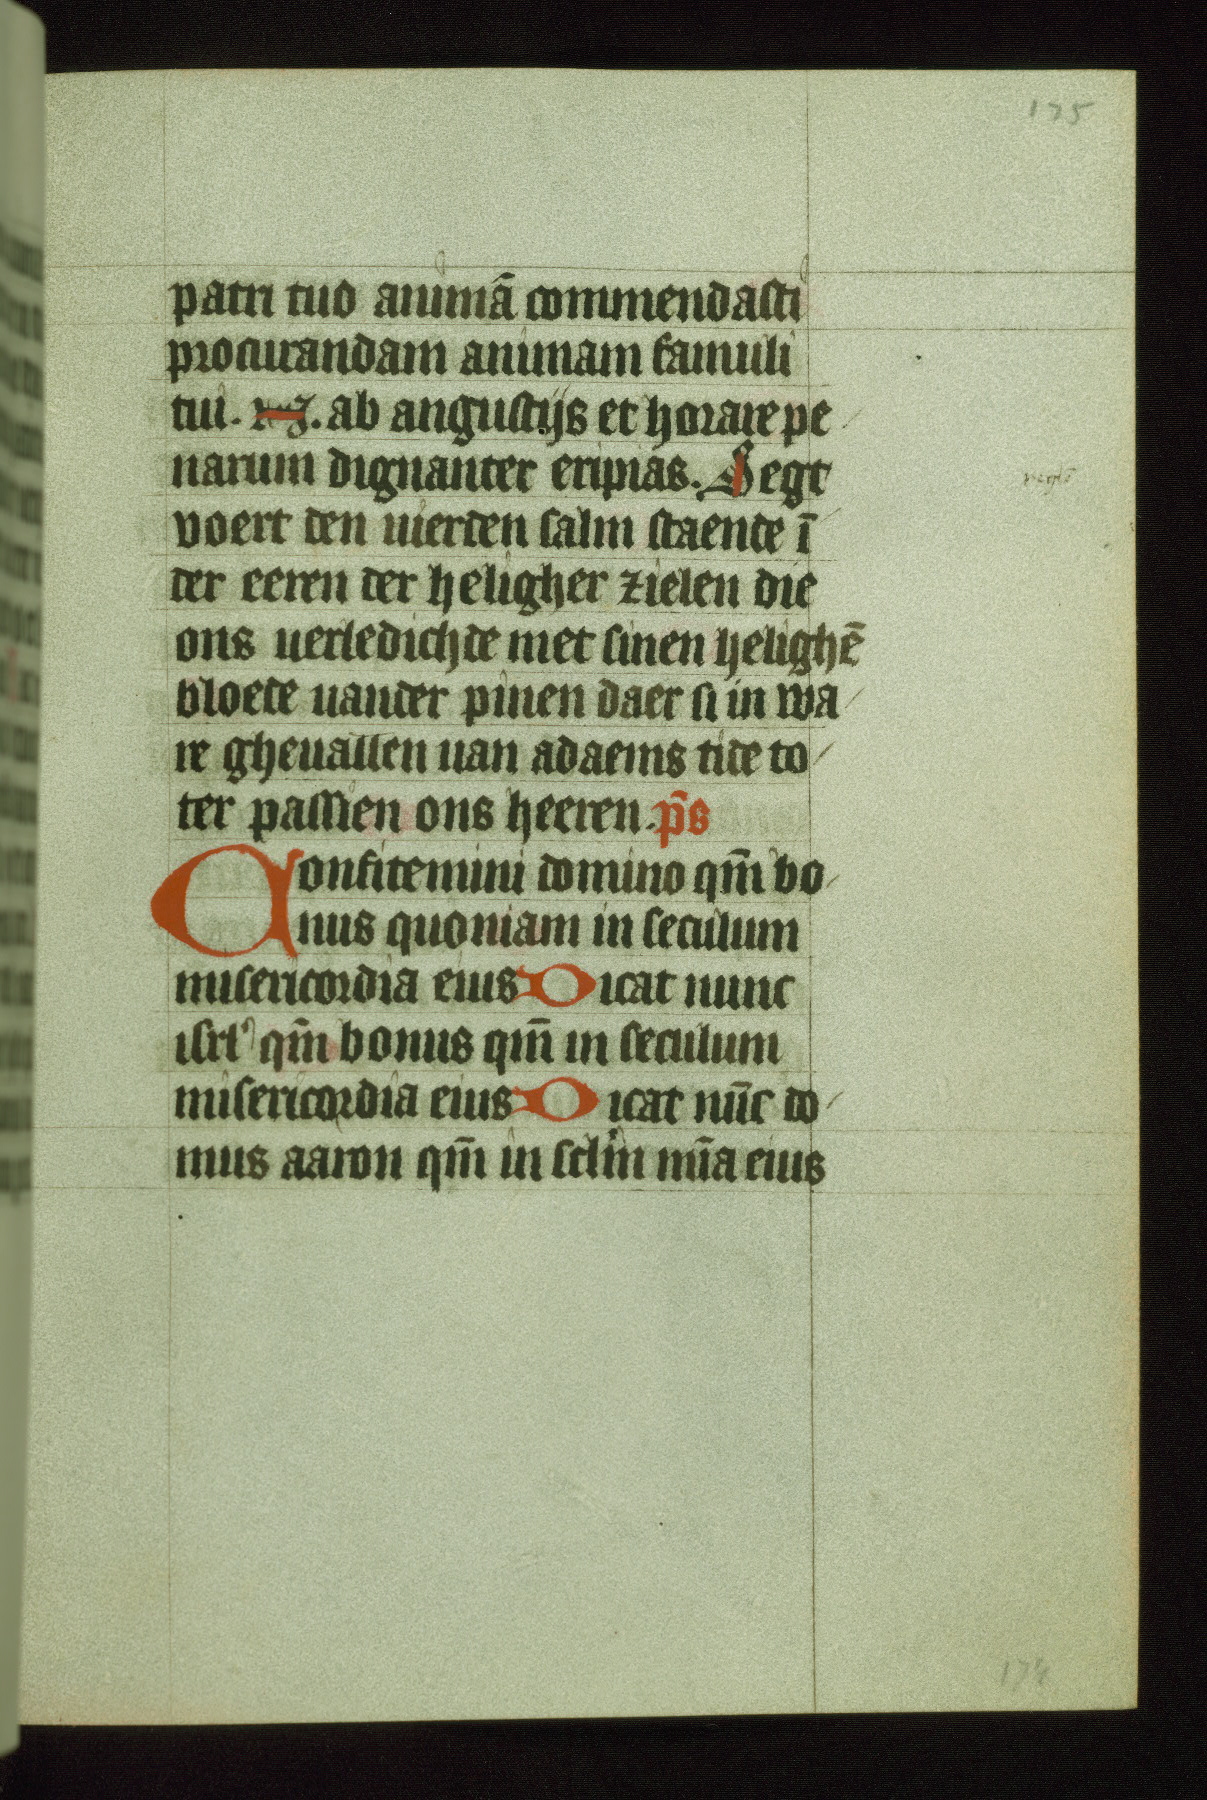 175
patri tuo animā commendasti
procurandam animam famuli
tui. .N. ab angustijs et horare pe
narum dignanter eripias. Segt
voert den uierden salm staende ī
der eeren der heligher zielen die
ons uerledichde met sinen helighē
bloede uander pinen daer si in wa
re gheuallen uan adaems tide to
ter passien ons heeren. p̄s
Confitemini domino qm̄ bo
nus quoniam in seculum
misericordia eius Dicat nunc
isrl' qm̄ bonus qm̄ in seculum
misericordia eius Dicat nūc do
mus aaron qm̄ in sclm̄ mīa eius
174